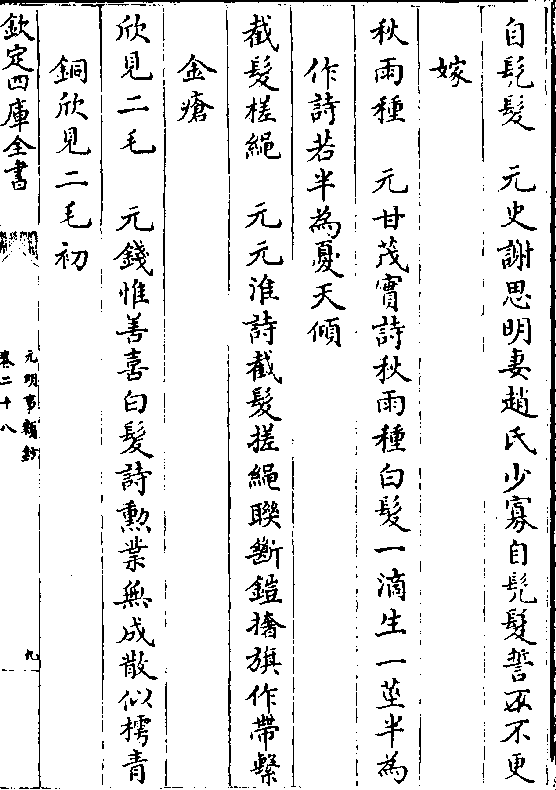 自髠髮　元史謝思明妻趙氏少寡自髠髮誓不更
嫁
秋雨種　元甘茂實詩秋雨種白髮一滴生一莖半為
作詩苦半為憂天傾
截髮槎繩　元元淮詩截髮搓繩聯斷鎧擣旗作帶繫
金瘡
欣見二毛　元錢惟善喜白髮詩勲業無成散似樗青
銅欣見二毛初
欽定四庫全書
元明事類鈔
卷二十八
九